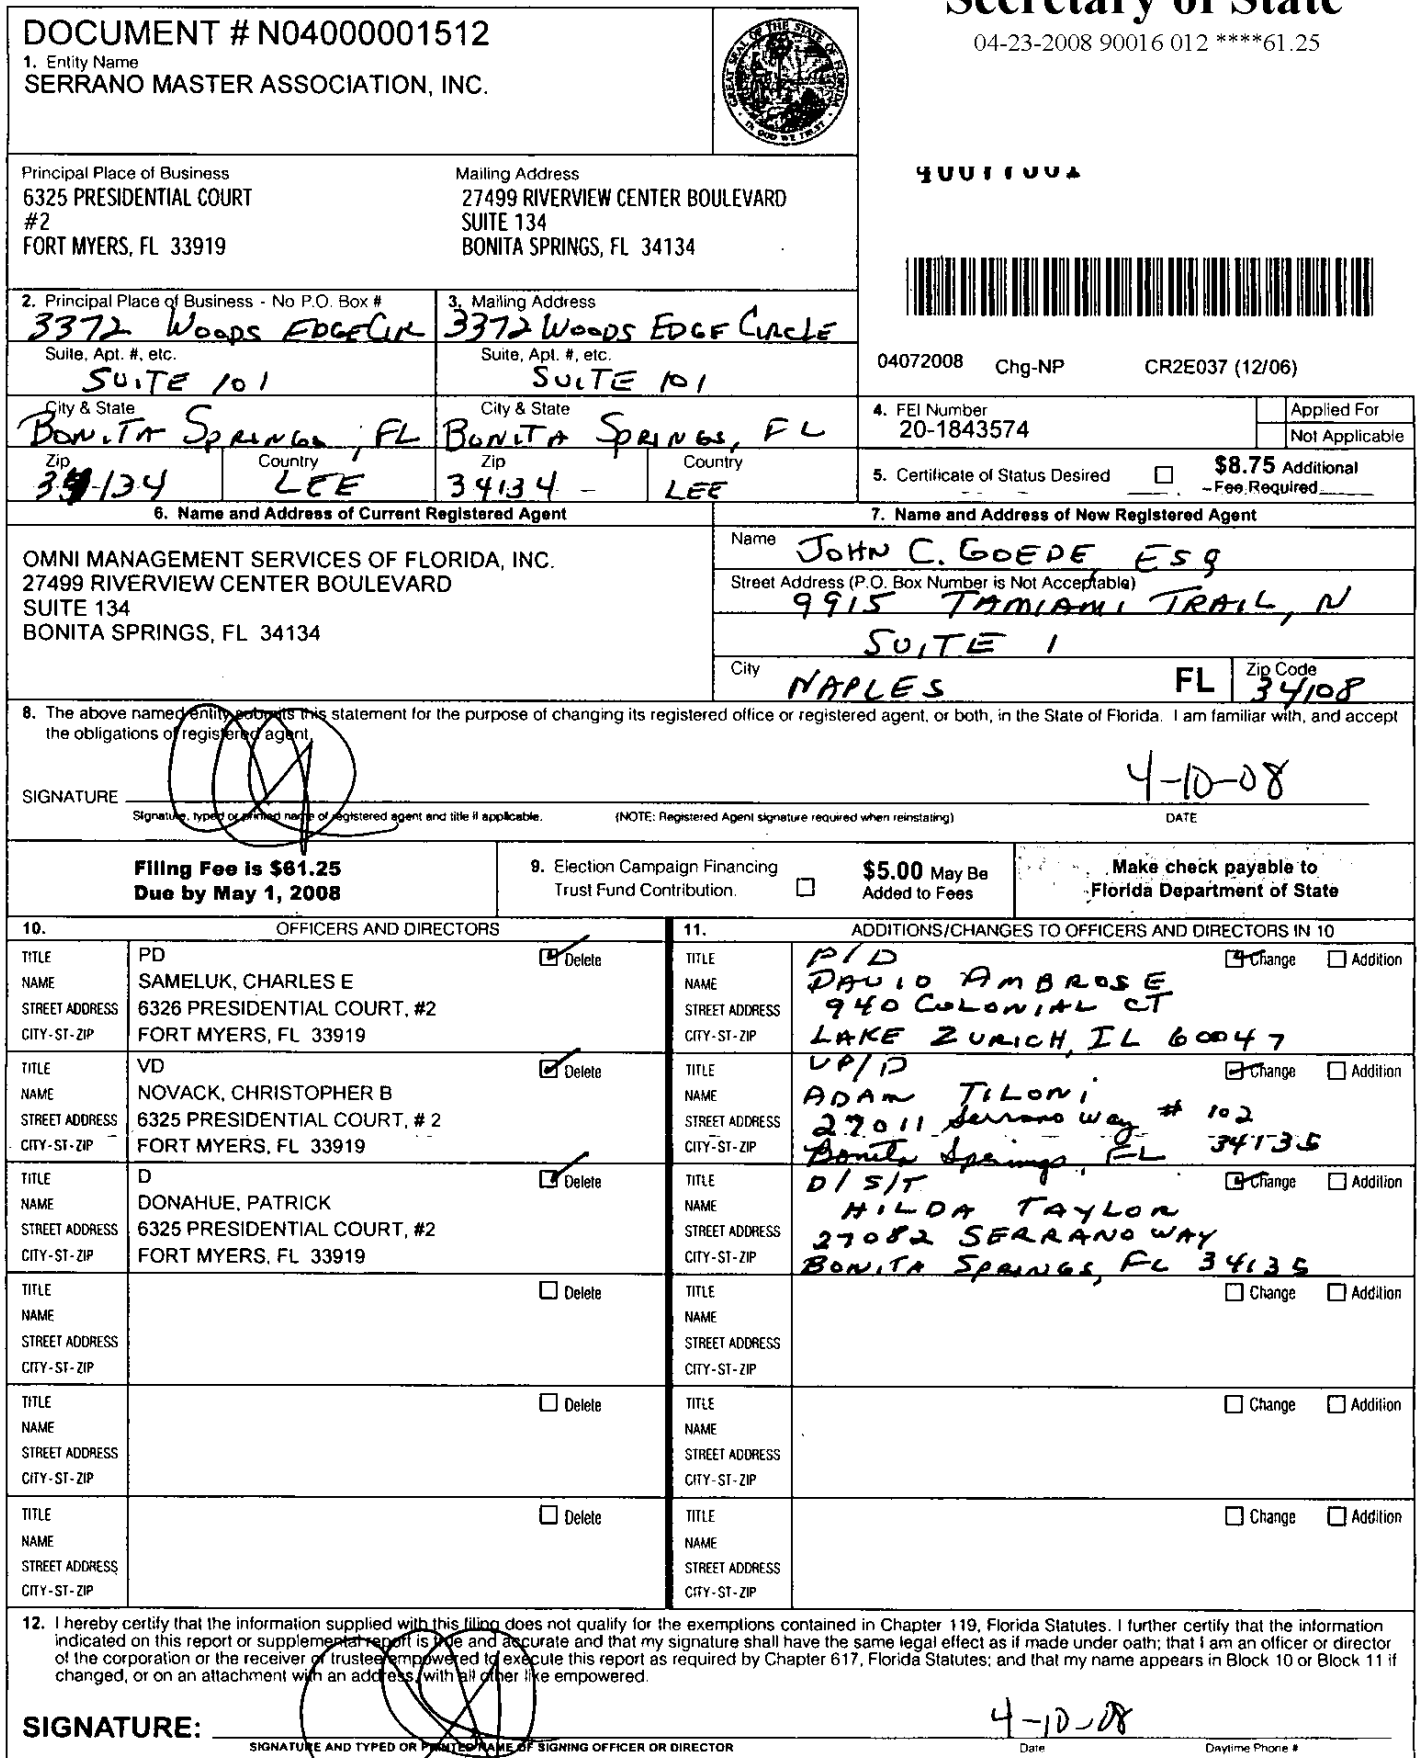 Secretary of State
04-23-2008 90016 012 ****61.25
DOCUMENT # N04000001512
1. Entity Name
SERRANO MASTER ASSOCIATION, INC.
Principal Place of Business
6325 PRESIDENTIAL COURT
#2
FORT MYERS, FL 33919
Mailing Address
27499 RIVERVIEW CENTER BOULEVARD
SUITE 134
BONITA SPRINGS, FL 34134
2. Principal Place of Business - No P.O. Box #
3372 WOODS EDGE CIR
3. Mailing Address
3372 WOODS EDGE CIRCLE
Suite, Apt. #, etc.
SUITE 101
Suite, Apt. #, etc.
SUITE 101
City & State
BONITA SPRINGS, FL
City & State
BONITA SPRINGS, FL
Zip
34134
Country
LEE
Zip
34134 -
Country
LEE
04072008 Chg-NP CR2E037 (12/06)
4. FEI Number
20-1843574
Applied For
Not Applicable
5. Certificate of Status Desired
$8.75 Additional
Fee Required
6. Name and Address of Current Registered Agent
OMNI MANAGEMENT SERVICES OF FLORIDA, INC.
27499 RIVERVIEW CENTER BOULEVARD
SUITE 134
BONITA SPRINGS, FL 34134
7. Name and Address of New Registered Agent
Name JOHN C. GOEDE, ESq
Street Address (P.O. Box Number is Not Acceptable)
9915 TAMIAMI TRAIL, N
SUITE 1
City NAPLES FL Zip Code 34108
8. The above named entity submits this statement for the purpose of changing its registered office or registered agent, or both, in the State of Florida. I am familiar with, and accept
the obligations of registered agent.
SIGNATURE
4-10-08
Signature, typed or printed name of registered agent and title if applicable. (NOTE: Registered Agent signature required when reinstating) DATE
Filing Fee is $61.25
Due by May 1, 2008
9. Election Campaign Financing
Trust Fund Contribution.
$5.00 May Be
Added to Fees
Make check payable to
Florida Department of State
10. OFFICERS AND DIRECTORS
TITLE PD Delete
NAME SAMELUK, CHARLES E
STREET ADDRESS 6326 PRESIDENTIAL COURT, #2
CITY-ST-ZIP FORT MYERS, FL 33919
TITLE VD Delete
NAME NOVACK, CHRISTOPHER B
STREET ADDRESS 6325 PRESIDENTIAL COURT, # 2
CITY-ST-ZIP FORT MYERS, FL 33919
TITLE D Delete
NAME DONAHUE, PATRICK
STREET ADDRESS 6325 PRESIDENTIAL COURT, #2
CITY-ST-ZIP FORT MYERS, FL 33919
TITLE Delete
NAME
STREET ADDRESS
CITY-ST-ZIP
TITLE Delete
NAME
STREET ADDRESS
CITY-ST-ZIP
TITLE Delete
NAME
STREET ADDRESS
CITY-ST-ZIP
11. ADDITIONS/CHANGES TO OFFICERS AND DIRECTORS IN 10
TITLE P/D Change Addition
NAME DAVID AMBROSE
STREET ADDRESS 940 COLONIAL CT
CITY-ST-ZIP LAKE ZURICH, IL 60047
TITLE VP/D Change Addition
NAME ADAM TILONI
STREET ADDRESS 27011 Serrano Way # 102
CITY-ST-ZIP Bonita Springs, FL 34135
TITLE D/S/T Change Addition
NAME HILDA TAYLOR
STREET ADDRESS 27082 SERRANO WAY
CITY-ST-ZIP BONITA SPRINGS, FL 34135
TITLE Change Addition
NAME
STREET ADDRESS
CITY-ST-ZIP
TITLE Change Addition
NAME
STREET ADDRESS
CITY-ST-ZIP
TITLE Change Addition
NAME
STREET ADDRESS
CITY-ST-ZIP
12. I hereby certify that the information supplied with this filing does not qualify for the exemptions contained in Chapter 119, Florida Statutes. I further certify that the information
indicated on this report or supplemental report is true and accurate and that my signature shall have the same legal effect as if made under oath; that I am an officer or director
of the corporation or the receiver or trustee empowered to execute this report as required by Chapter 617, Florida Statutes; and that my name appears in Block 10 or Block 11 if
changed, or on an attachment with an address, with all other like empowered.
SIGNATURE:
4-10-08
SIGNATURE AND TYPED OR PRINTED NAME OF SIGNING OFFICER OR DIRECTOR Date Daytime Phone #